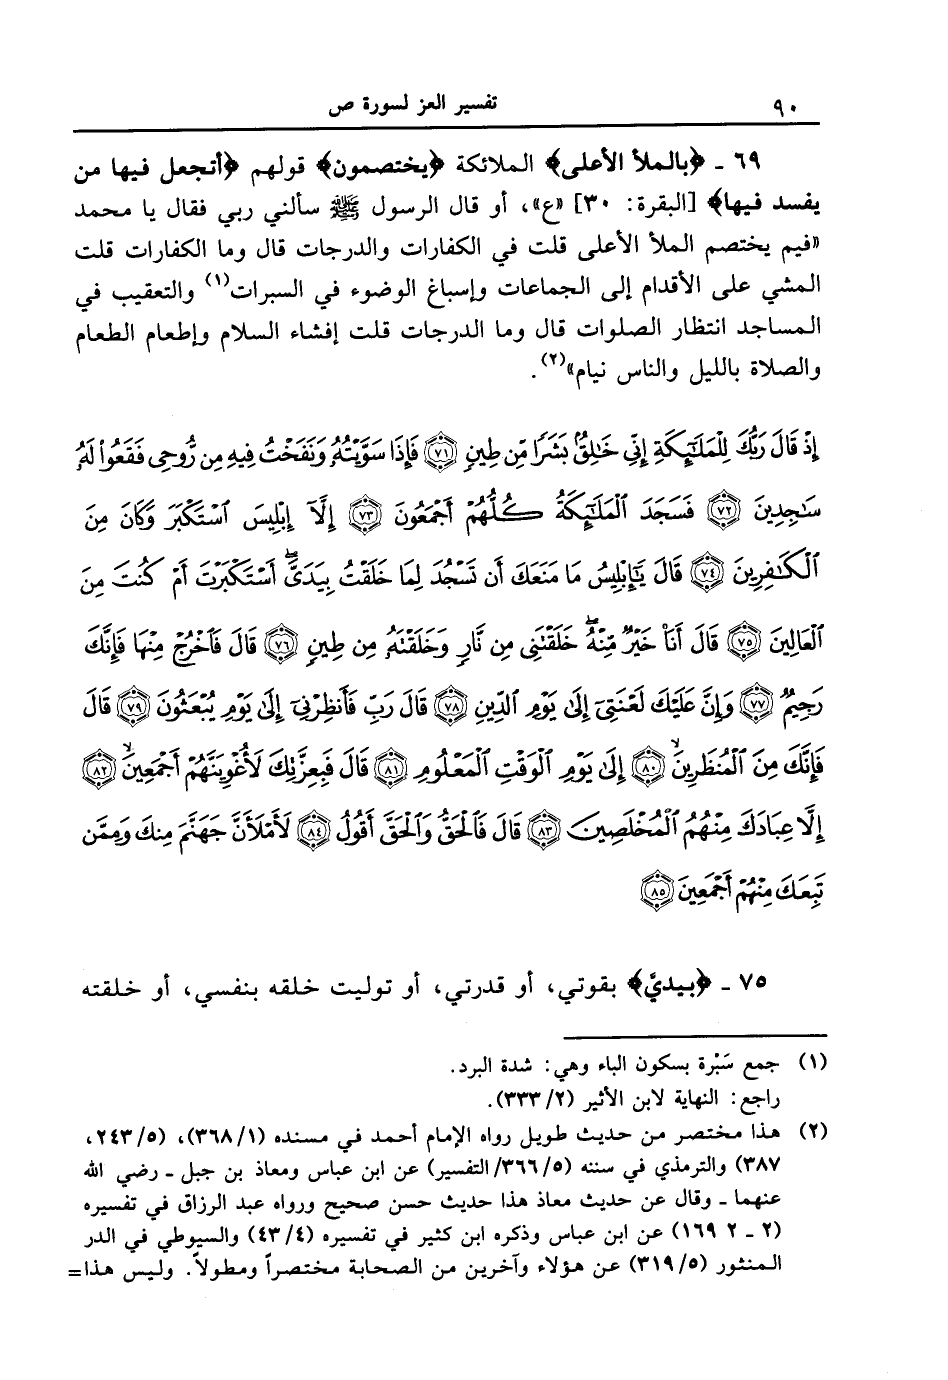 ٩٠ تفسير العز لسورة ص
٦٩ ـ ﴿بالملأ الأعلى﴾ الملائكة ﴿يختصمون﴾ قولهم ﴿أتجعل فيها من
يفسد فيها﴾ [البقرة: ٣٠] «ع»، أو قال الرسول ﷺ سألني ربي فقال يا محمد
«فيم يختصم الملأ الأعلى قلت في الكفارات والدرجات قال وما الكفارات قلت
المشي على الأقدام إلى الجماعات وإسباغ الوضوء في السبرات(١) والتعقيب في
المساجد انتظار الصلوات قال وما الدرجات قلت إفشاء السلام وإطعام الطعام
والصلاة بالليل والناس نيام»(٢).
إِذْ قَالَ رَبُّكَ لِلْمَلَٰٓئِكَةِ إِنِّى خَٰلِقٌۢ بَشَرًا مِّن طِينٍ ﴿٧١﴾ فَإِذَا سَوَّيْتُهُۥ وَنَفَخْتُ فِيهِ مِن رُّوحِى فَقَعُوا۟ لَهُۥ
سَٰجِدِينَ ﴿٧٢﴾ فَسَجَدَ ٱلْمَلَٰٓئِكَةُ كُلُّهُمْ أَجْمَعُونَ ﴿٧٣﴾ إِلَّآ إِبْلِيسَ ٱسْتَكْبَرَ وَكَانَ مِنَ
ٱلْكَٰفِرِينَ ﴿٧٤﴾ قَالَ يَٰٓإِبْلِيسُ مَا مَنَعَكَ أَن تَسْجُدَ لِمَا خَلَقْتُ بِيَدَىَّ ۖ أَسْتَكْبَرْتَ أَمْ كُنتَ مِنَ
ٱلْعَالِينَ ﴿٧٥﴾ قَالَ أَنَا۠ خَيْرٌ مِّنْهُ ۖ خَلَقْتَنِى مِن نَّارٍ وَخَلَقْتَهُۥ مِن طِينٍ ﴿٧٦﴾ قَالَ فَٱخْرُجْ مِنْهَا فَإِنَّكَ
رَجِيمٌ ﴿٧٧﴾ وَإِنَّ عَلَيْكَ لَعْنَتِىٓ إِلَىٰ يَوْمِ ٱلدِّينِ ﴿٧٨﴾ قَالَ رَبِّ فَأَنظِرْنِىٓ إِلَىٰ يَوْمِ يُبْعَثُونَ ﴿٧٩﴾ قَالَ
فَإِنَّكَ مِنَ ٱلْمُنظَرِينَ ۙ ﴿٨٠﴾ إِلَىٰ يَوْمِ ٱلْوَقْتِ ٱلْمَعْلُومِ ﴿٨١﴾ قَالَ فَبِعِزَّتِكَ لَأُغْوِيَنَّهُمْ أَجْمَعِينَ ۙ ﴿٨٢﴾
إِلَّا عِبَادَكَ مِنْهُمُ ٱلْمُخْلَصِينَ ﴿٨٣﴾ قَالَ فَٱلْحَقُّ وَٱلْحَقَّ أَقُولُ ﴿٨٤﴾ لَأَمْلَأَنَّ جَهَنَّمَ مِنكَ وَمِمَّن
تَبِعَكَ مِنْهُمْ أَجْمَعِينَ ﴿٨٥﴾
٧٥ ـ ﴿بيديَّ﴾ بقوتي، أو قدرتي، أو توليت خلقه بنفسي، أو خلقته
(١) جمع سَبْرة بسكون الباء وهي: شدة البرد.
راجع: النهاية لابن الأثير (٣٣٣/٢).
(٢) هذا مختصر من حديث طويل رواه الإمام أحمد في مسنده (٣٦٨/١)، (٢٤٣/٥،
٣٨٧) والترمذي في سننه (٣٦٦/٥/التفسير) عن ابن عباس ومعاذ بن جبل ـ رضي الله
عنهما ـ وقال عن حديث معاذ هذا حديث حسن صحيح ورواه عبد الرزاق في تفسيره
(٢ ـ ٢ ١٦٩) عن ابن عباس وذكره ابن كثير في تفسيره (٤٣/٤) والسيوطي في الدر
المنثور (٣١٩/٥) عن هؤلاء وآخرين من الصحابة مختصراً ومطولاً. وليس هذا=